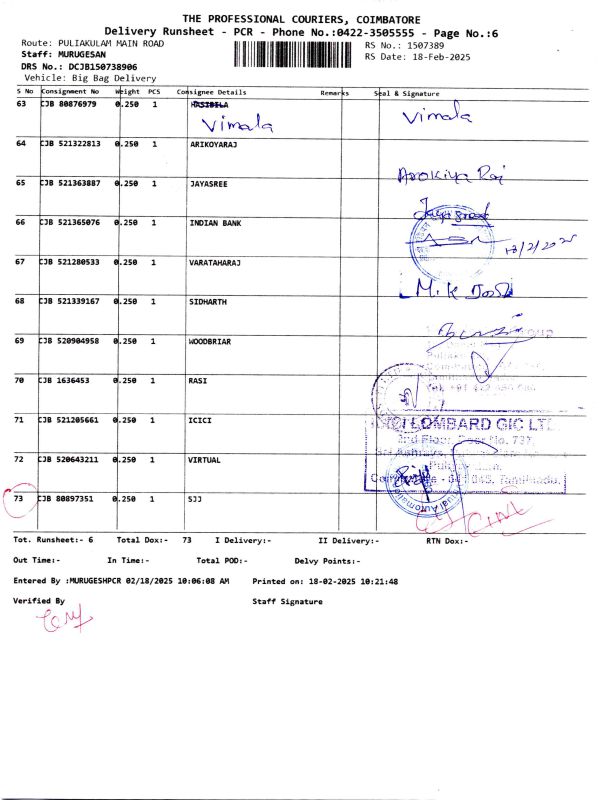 THE PROFESSIONAL COURIERS, COIMBATORE
Delivery Runsheet - PCR - Phone No.:0422-3505555 - Page No.:6
Route: PULIAKULAM MAIN ROAD RS No.: 1507389
Staff: MURUGESAN RS Date: 18-Feb-2025
DRS No.: DCJB150738906
Vehicle: Big Bag Delivery
S No Consignment No Weight PCS Consignee Details Remarks Seal & Signature
63 CJB 80876979 0.250 1 Vimala
Vimala
64 CJB 521322813 0.250 1 ARIKOYARAJ
Arokiya Raj
65 CJB 521363887 0.250 1 JAYASREE
Jayasree
66 CJB 521365076 0.250 1 INDIAN BANK
18/2/2025
67 CJB 521280533 0.250 1 VARATAHARAJ
M.K
68 CJB 521339167 0.250 1 SIDHARTH
69 CJB 520904958 0.250 1 WOODBRIAR
70 CJB 1636453 0.250 1 RASI
71 CJB 521205661 0.250 1 ICICI
LOMBARD GIC LTD
2nd Floor, Door No. 737,
72 CJB 520643211 0.250 1 VIRTUAL
Tamilnadu.
73 CJB 80897351 0.250 1 SJJ
Tot. Runsheet:- 6 Total Dox:- 73 I Delivery:- II Delivery:- RTN Dox:-
Out Time:- In Time:- Total POD:- Delvy Points:-
Entered By :MURUGESHPCR 02/18/2025 10:06:08 AM Printed on: 18-02-2025 10:21:48
Verified By Staff Signature